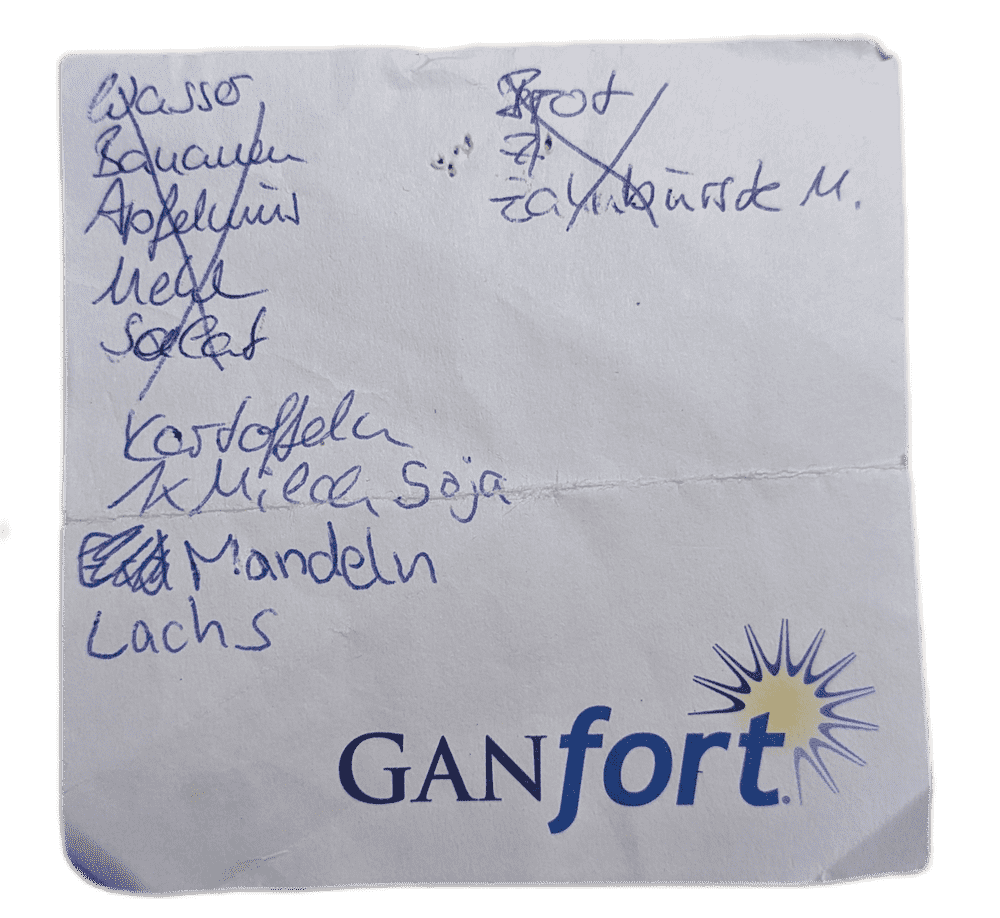 Wasser
Bananen
Apfelmus
Mehl
Salat
Kartoffeln
1x Milch, Soja
Mandeln
Lachs
Brot
Zahnbürste M.
GANfort.